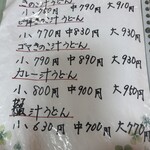 きのこ汁うどん
小、760円 中790円 大910円
小、770円 中830円 大930円
ごまきのこ汁うどん
小、790円 中890円 大930円
カレー汁うどん
小、800円 中900円 大960円
汁うどん
小、630円 中700円 大770円